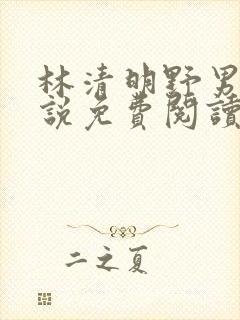 林清明野男
說免費閱讀
二之夏